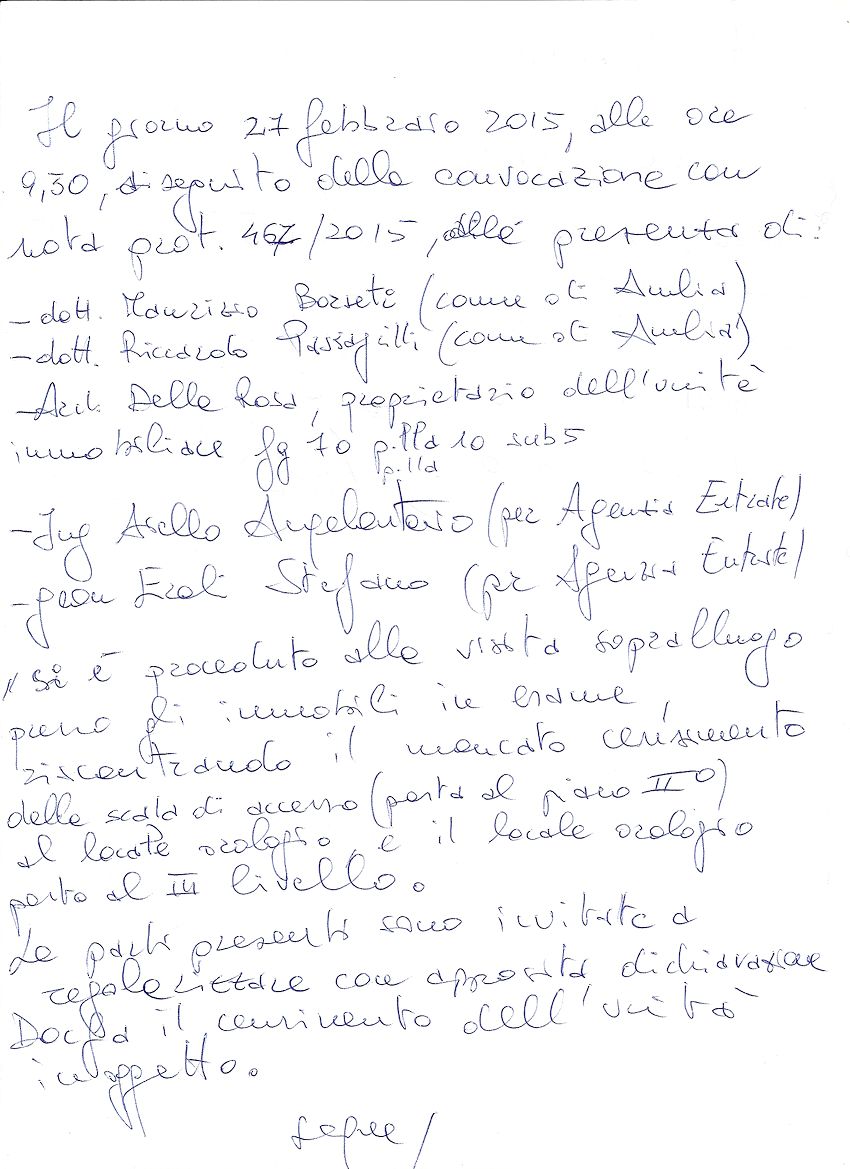 Il giorno 27 febbraio 2015, alle ore
9,30, a seguito della convocazione con
nota prot. 467/2015, alla presenza di:
- dott. Maurizio Borseti (comune di Amelia)
- dott. Riccardo Passagrilli (comune di Amelia)
- Arch. Della Rosa, proprietario dell'unità
immobiliare fg 70 p.lla 10 sub 5
p.lla
- Ing Asello Angelantonio (per Agenzia Entrate)
- geom Eroli Stefano (per Agenzia Entrate)
Si è proceduto alla visita sopralluogo
presso gli immobili in esame,
riscontrando il mancato censimento
della scala di accesso (posta al piano II°)
al locale orologio, e il locale orologio
posto al III livello.
Le parti presenti sono invitate a
regolarizzare con apposita dichiarazione
Docfa il censimento dell'unità
in oggetto.
segue /